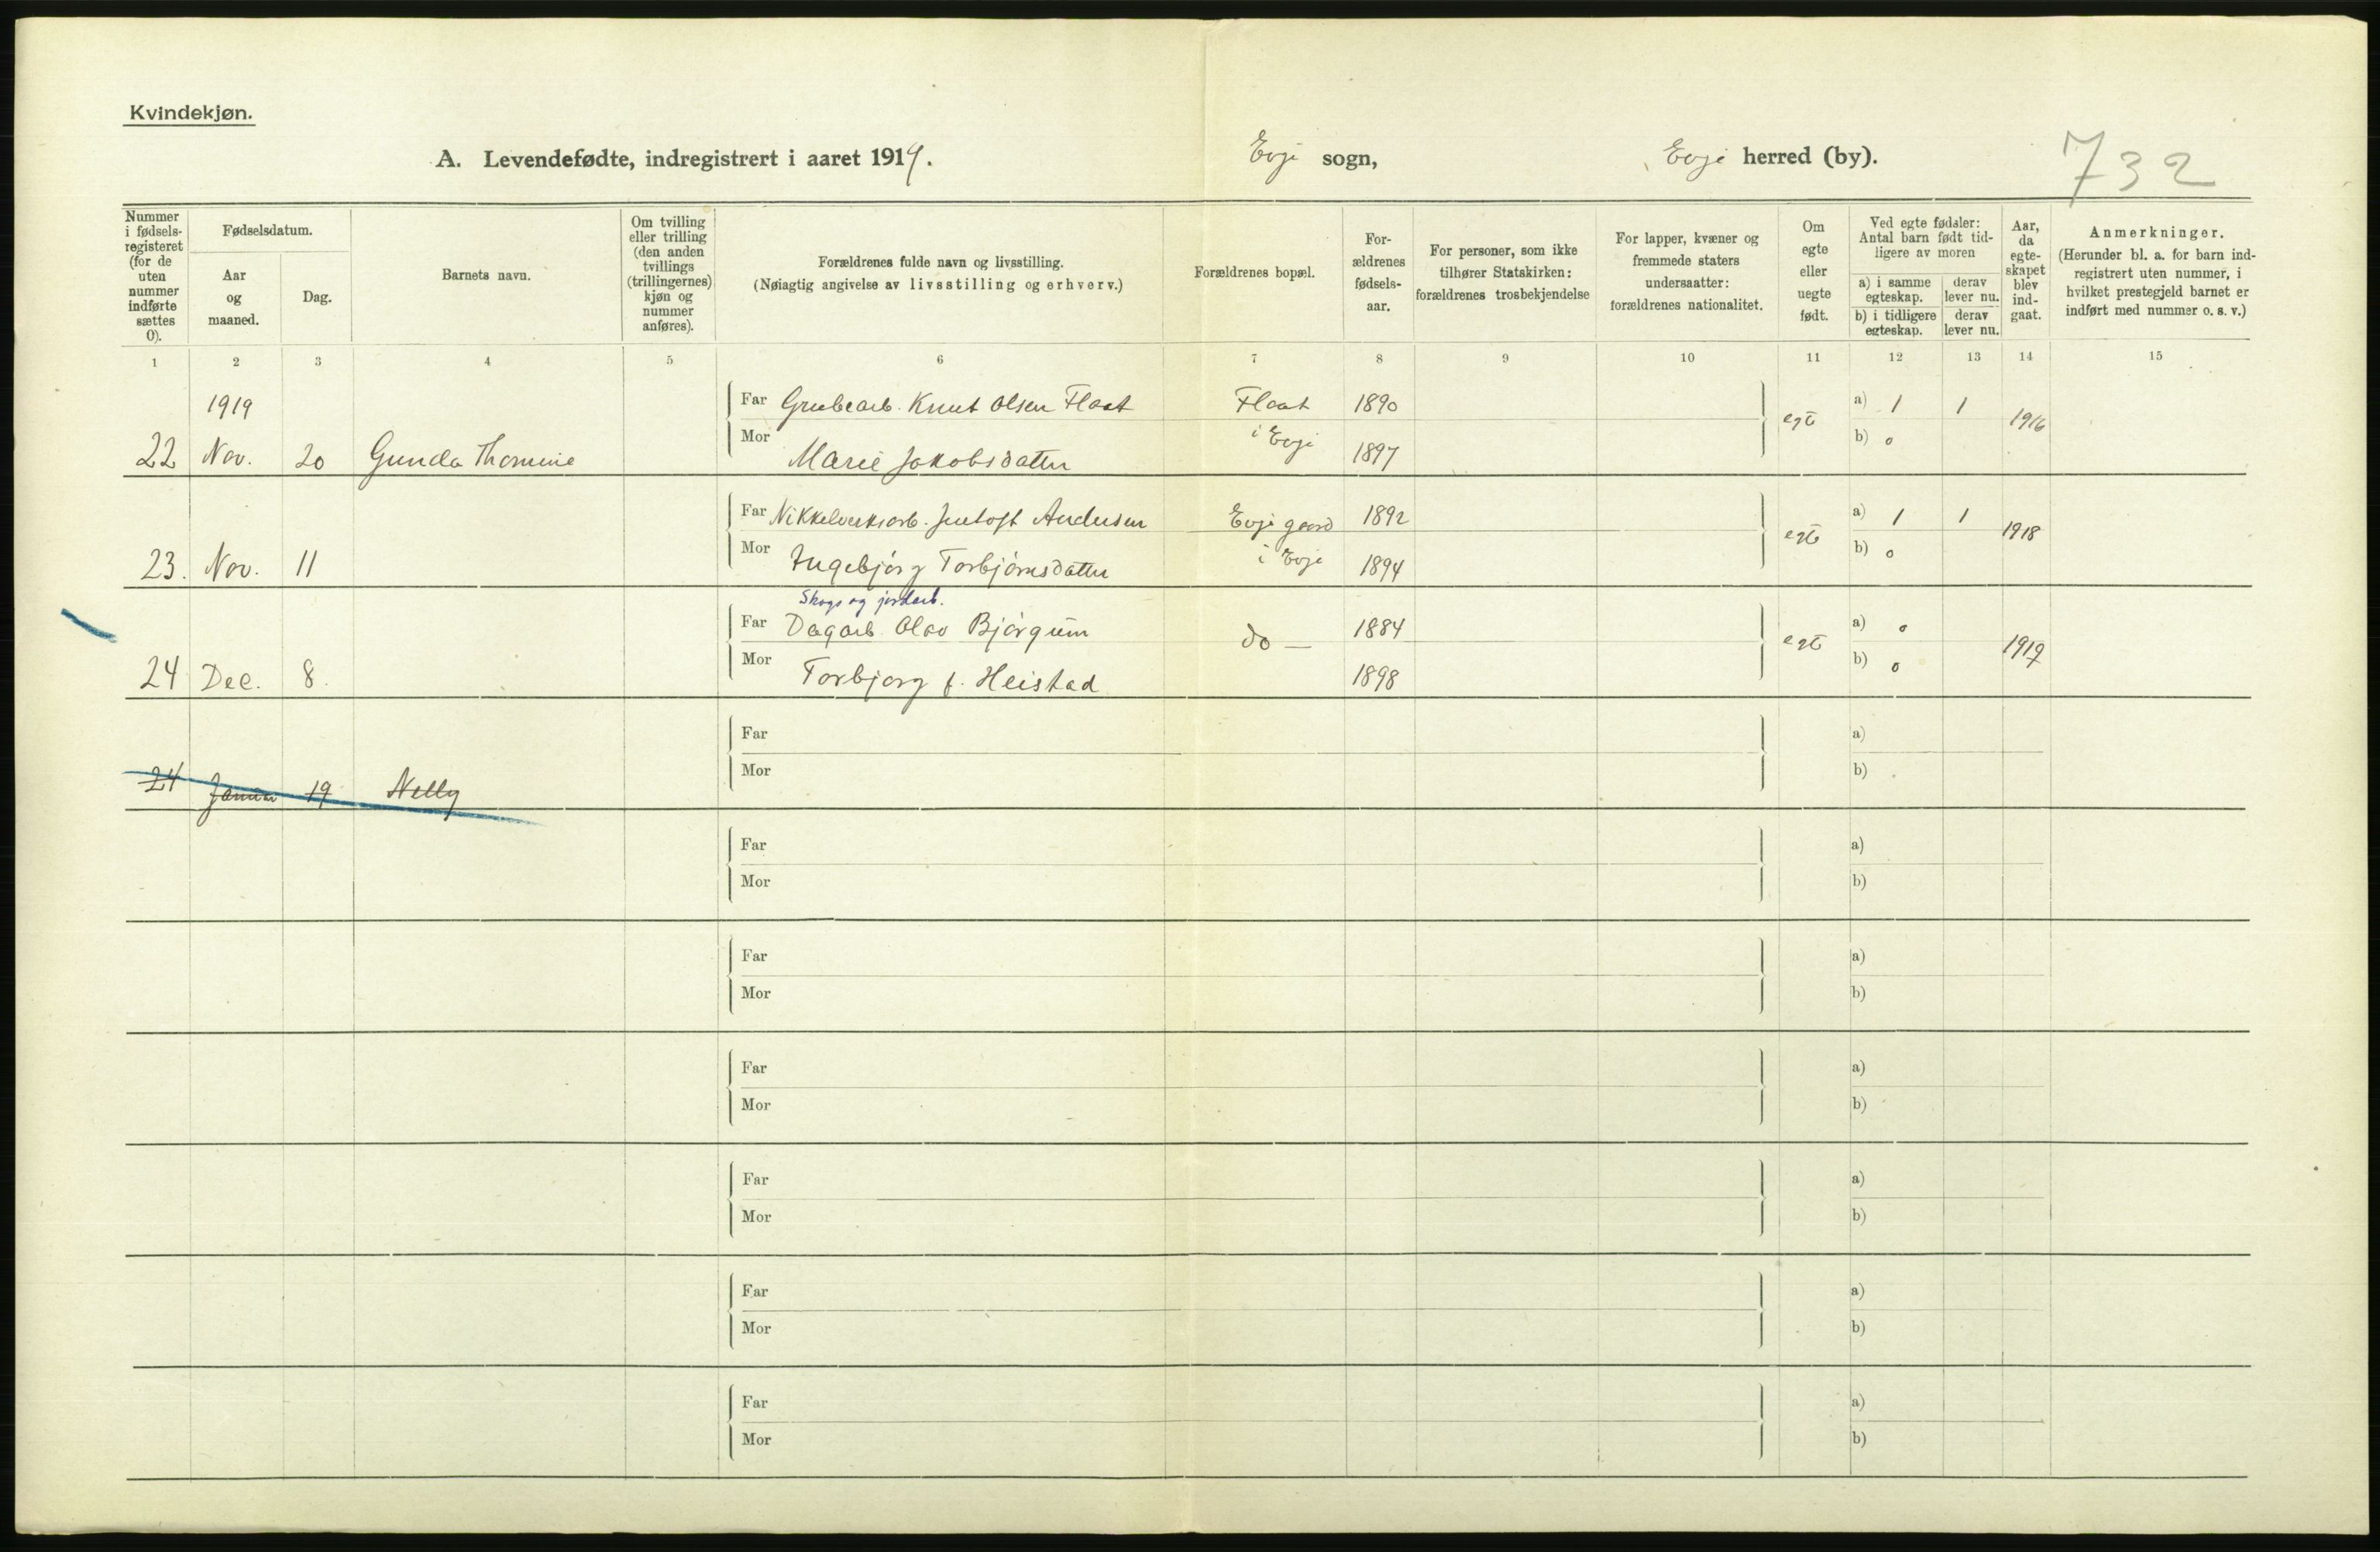 Kvindekjøn.
A. Levendefødte, indregistrert i aaret 1919. Evje sogn, Evje herred (by). 732
Nummer i fødsels-registeret (for de uten nummer indførte sættes 0).
Fødselsdatum.
Aar og maaned.
Dag.
Barnets navn.
Om tvilling eller trilling (den anden tvillings (trillingernes) kjøn og nummer anføres).
Forældrenes fulde navn og livsstilling.
(Nøiagtig angivelse av livsstilling og erhverv.)
Forældrenes bopæl.
For-ældrenes fødsels-aar.
For personer, som ikke tilhører Statskirken: forældrenes trosbekjendelse
For lapper, kvæner og fremmede staters undersaatter: forældrenes nationalitet.
Om egte eller uegte født.
Ved egte fødsler: Antal barn født tid-ligere av moren
a) i samme egteskap.
derav lever nu.
b) i tidligere egteskap.
derav lever nu.
Aar, da egte-skapet blev ind-gaat.
Anmerkninger.
(Herunder bl. a. for barn ind-registrert uten nummer, i hvilket prestegjeld barnet er indført med nummer o. s. v.)
1 2 3 4 5 6 7 8 9 10 11 12 13 14 15
1919 Far Grubearb. Knut Olsen Flaat Flaat 1890 egte a) 1 1 1916
22 Nov. 20 Gunda Thomine Mor Marie Jakobsdatter i Evje 1897 b) 0
Far Nikkelverksarb. Andersen Evje gaard 1892 egte a) 1 1 1918
23. Nov. 11 Mor Ingebjørg Torbjørnsdatter i Evje 1894 b) 0
Skogs og jordarb.
Far Dagarb. Olav Bjørgum do — 1884 egte a) 0 1919
24 Dec. 8. Mor Torbjørg f. Heistad 1898 b) 0
Far a)
24 Januar 19 Nelly Mor b)
Far a)
Mor b)
Far a)
Mor b)
Far a)
Mor b)
Far a)
Mor b)
Far a)
Mor b)
Far a)
Mor b)